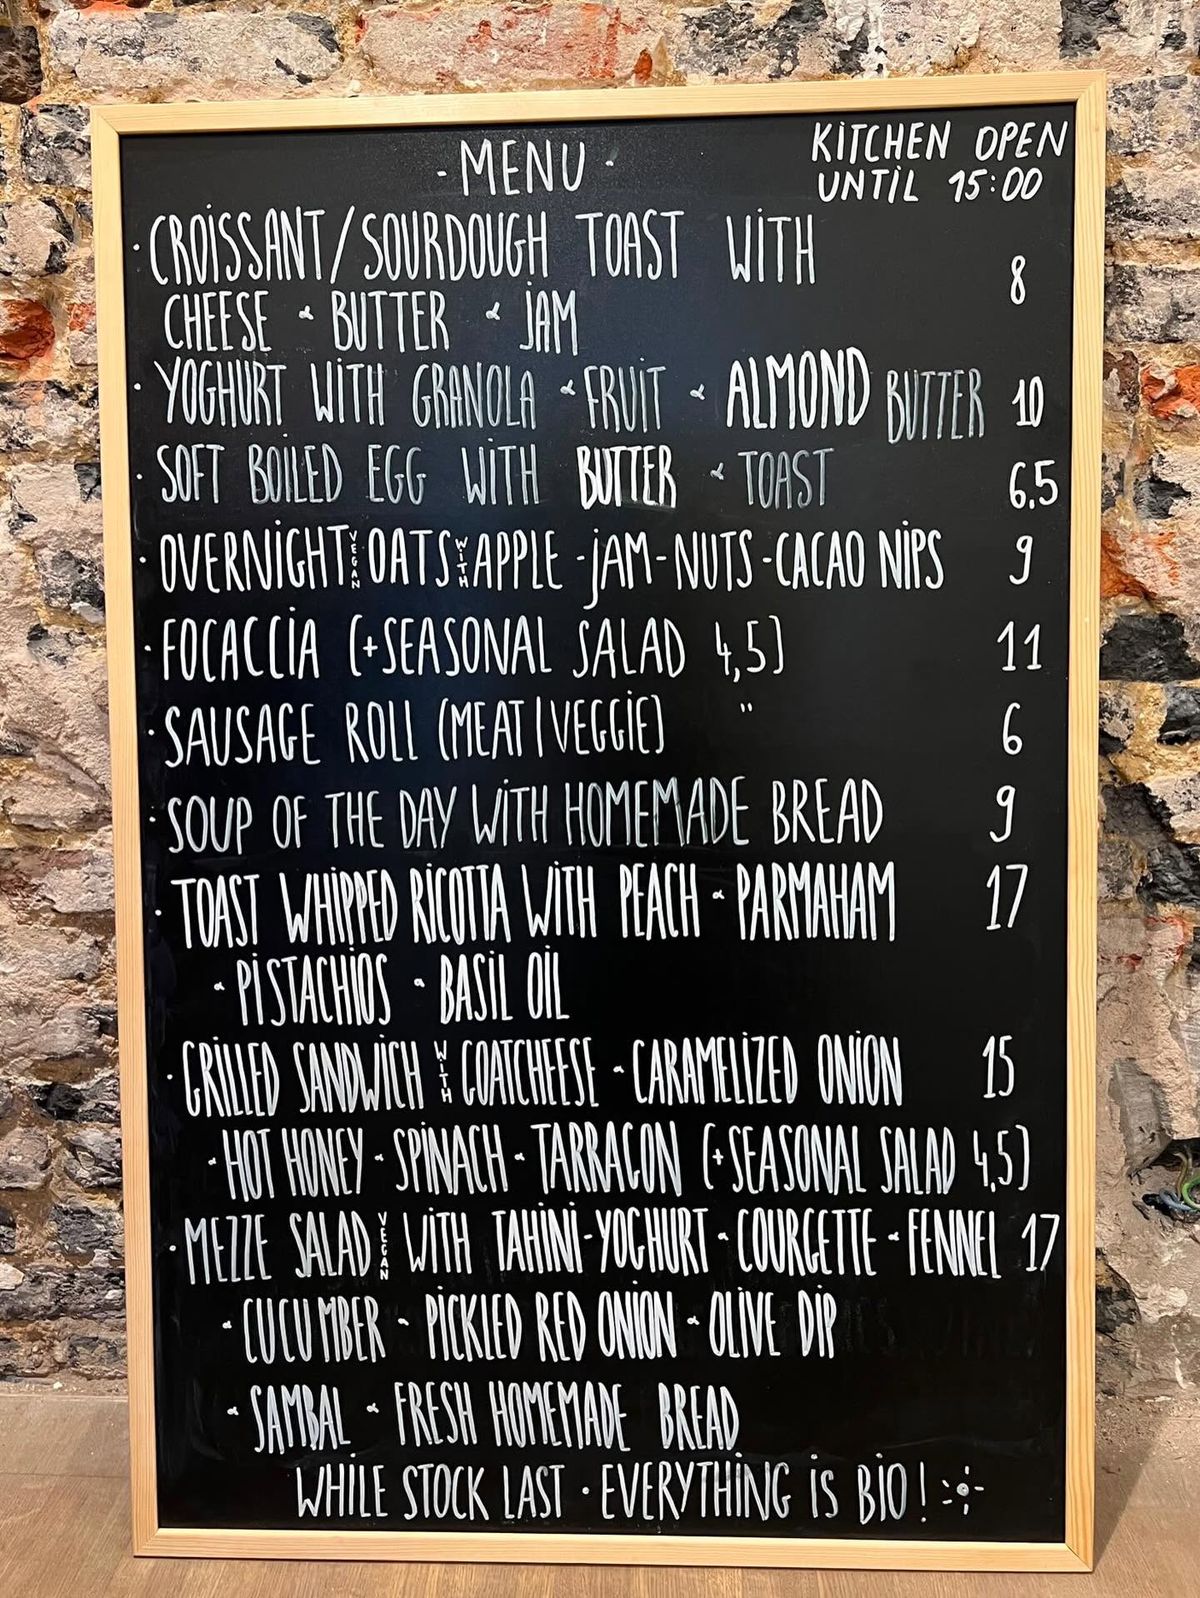 - MENU -
KITCHEN OPEN
UNTIL 15:00
· CROISSANT/SOURDOUGH TOAST WITH
CHEESE & BUTTER & JAM 8
· YOGHURT WITH GRANOLA & FRUIT & ALMOND BUTTER 10
· SOFT BOILED EGG WITH BUTTER & TOAST 6.5
· OVERNIGHT VEGAN OATS WITH APPLE - JAM - NUTS - CACAO NIPS 9
· FOCACCIA (+SEASONAL SALAD 4,5) 11
· SAUSAGE ROLL (MEAT | VEGGIE) " 6
· SOUP OF THE DAY WITH HOMEMADE BREAD 9
· TOAST WHIPPED RICOTTA WITH PEACH & PARMAHAM 17
& PISTACHIOS & BASIL OIL
· GRILLED SANDWICH WITH GOATCHEESE & CARAMELIZED ONION 15
& HOT HONEY & SPINACH & TARRAGON (+SEASONAL SALAD 4,5)
· MEZZE SALAD VEGAN WITH TAHINI-YOGHURT & COURGETTE & FENNEL 17
& CUCUMBER & PICKLED RED ONION & OLIVE DIP
& SAMBAL & FRESH HOMEMADE BREAD
WHILE STOCK LAST · EVERYTHING IS BIO!